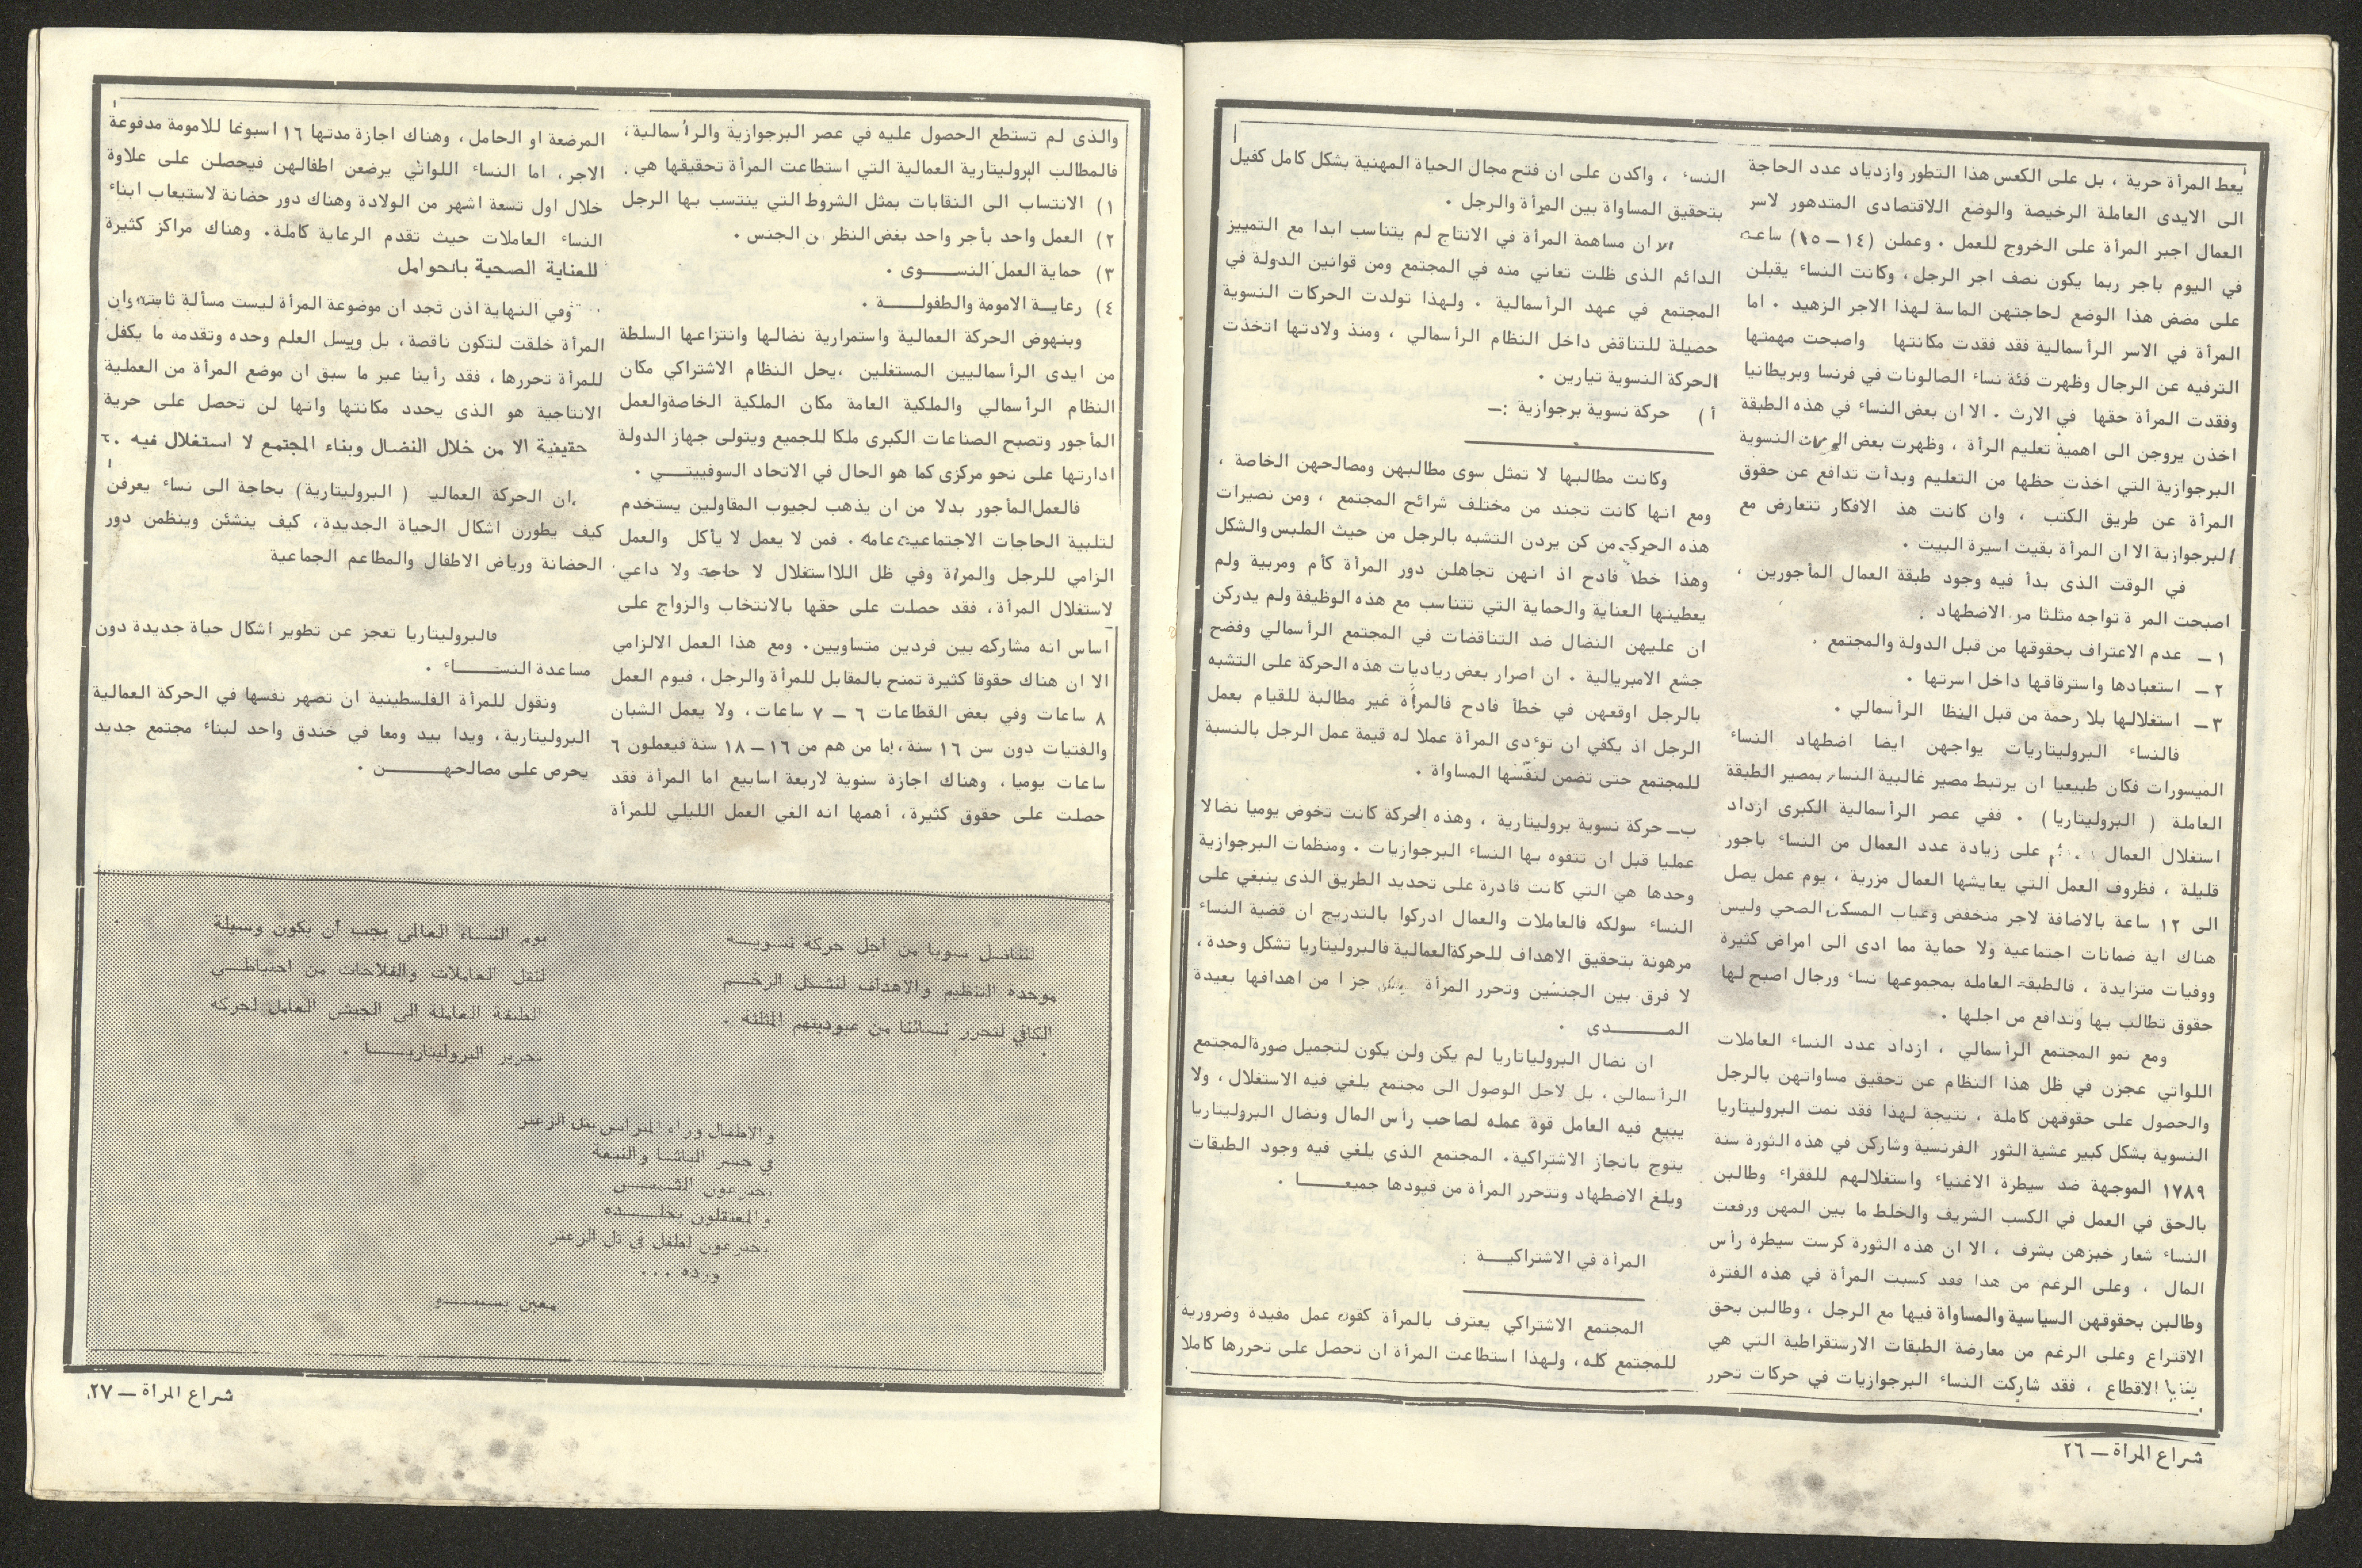 يعط المرأة حرية ، بل على الكعس هذا التطور وازدياد عدد الحاجة
الى الايدى العاملة الرخيصة والوضع اللاقتصادى المتدهور لاسر
العمال اجبر المرأة على الخروج للعمل . وعملن (١٤ – ١٥) ساعة
في اليوم باجر ربما يكون نصف اجر الرجل ، وكانت النساء يقبلن
على مضض هذا الوضع لحاجتهن الماسة لهذا الاجر الزهيد . اما
المرأة في الاسر الرأسمالية فقد فقدت مكانتها واصبحت مهمتها
الترفيه عن الرجال وظهرت فئة نساء الصالونات في فرنسا وبريطانيا
وفقدت المرأة حقها في الارث . الا ان بعض النساء في هذه الطبقة
اخذن يروجن الى اهمية تعليم الرأة ، وظهرت بعض النسوية
البرجوازية التي اخذت حظها من التعليم وبدأت تدافع عن حقوق
المرأة عن طريق الكتب ، وان كانت هذ الافكار تتعارض مع
البرجوازية الا ان المرأة بقيت اسيرة البيت .
في الوقت الذى بدأ فيه وجود طبقة العمال المأجورين ،
اصبحت المر ة تواجه مثلثا من الاضطهاد .
١ – عدم الاعتراف بحقوقها من قبل الدولة والمجتمع .
٢ – استعبادها واسترقاقها داخل اسرتها .
٣ – استغلالها بلا رحمة من قبل النظا الرأسمالي .
فالنساء البروليتاريات يواجهن ايضا اضطهاد النساء
الميسورات فكان طبيعيا ان يرتبط مصير غالبية النساء بمصير الطبقة
العاملة ( البروليتاريا ) . ففي عصر الرأسمالية الكبرى ازداد
استغلال العمال على زيادة عدد العمال من النساء باجور
قليلة ، فظروف العمل التي يعايشها العمال مزرية ، يوم عمل يصل
الى ١٢ ساعة بالاضافة لاجر منخفض وغياب المسكن الصحي وليس
هناك اية ضمانات اجتماعية ولا حماية مما ادى الى امراض كثيرة
ووفيات متزايدة ، فالطبقة العاملة بمجموعها نساء ورجال اصبح لها
حقوق تطالب بها وتدافع من اجلها .
ومع نمو المجتمع الرأسمالي ، ازداد عدد النساء العاملات
اللواتي عجزن في ظل هذا النظام عن تحقيق مساواتهن بالرجل
والحصول على حقوقهن كاملة ، نتيجة لهذا فقد نمت البروليتاريا
النسوية بشكل كبير عشية الثور الفرنسية وشاركن في هذه الثورة سنة
١٧٨٩ الموجهة ضد سيطرة الاغنياء واستغلالهم للفقراء وطالبن
بالحق في العمل في الكسب الشريف والخلط ما بين المهن ورفعت
النساء شعار خبزهن بشرف ، الا ان هذه الثورة كرست سيطرة رأس
المال ، وعلى الرغم من هذا فقد كسبت المرأة في هذه الفترة
وطالبن بحقوقهن السياسية والمساواة فيها مع الرجل ، وطالبن بحق
الاقتراع وعلى الرغم من معارضة الطبقات الارستقراطية التي هي
بقايا الاقطاع ، فقد شاركت النساء البرجوازيات في حركات تحرر
النساء ، واكدن على ان فتح مجال الحياة المهنية بشكل كامل كفيل
بتحقيق المساواة بين المرأة والرجل .
الا ان مساهمة المرأة في الانتاج لم يتناسب ابدا مع التمييز
الدائم الذى ظلت تعاني منه في المجتمع ومن قوانين الدولة في
المجتمع في عهد الرأسمالية . ولهذا تولدت الحركات النسوية
حصيلة للتناقض داخل النظام الرأسمالي ، ومنذ ولادتها اتخذت
الحركة النسوية تيارين .
أ ) حركة نسوية برجوازية :–
وكانت مطالبها لا تمثل سوى مطالبهن ومصالحهن الخاصة ،
ومع انها كانت تجند من مختلف شرائح المجتمع ، ومن نصيرات
هذه الحركة من كن يردن التشبه بالرجل من حيث الملبس والشكل
وهذا خطأ فادح اذ انهن تجاهلن دور المرأة كأم ومربية ولم
يعطينها العناية والحماية التي تتناسب مع هذه الوظيفة ولم يدركن
ان عليهن النضال ضد التناقضات في المجتمع الرأسمالي وفضح
جشع الامبريالية . ان اصرار بعض رياديات هذه الحركة على التشبه
بالرجل اوقعهن في خطأ فادح فالمرأة غير مطالبة للقيام بعمل
الرجل اذ يكفي ان توءدى المرأة عملا له قيمة عمل الرجل بالنسبة
للمجتمع حتى تضمن لنفسها المساواة .
ب – حركة نسوية بروليتارية ، وهذه الحركة كانت تخوض يوميا نضالا
عمليا قبل ان تتفوه بها النساء البرجوازيات . ومنظمات البرجوازية
وحدها هي التي كانت قادرة على تحديد الطريق الذى ينبغي على
النساء سولكه فالعاملات والعمال ادركوا بالتدريج ان قضية النساء
مرهونة بتحقيق الاهداف للحركة العمالية فالبروليتاريا تشكل وحدة ،
لا فرق بين الجنسين وتحرر المرأة جز ا من اهدافها بعيدة
المــــــدى .
ان نضال البروليتاتاريا لم يكن ولن يكون لتجميل صورة المجتمع
الرأسمالي ، بل لاجل الوصول الى مجتمع يلغي فيه الاستغلال ، ولا
يبيع فيه العامل قوة عمله لصاحب رأس المال ونضال البروليتاريا
يتوج بانجاز الاشتراكية . المجتمع الذي يلغي فيه وجود الطبقات
ويلغ الاضطهاد وتتحرر المرأة من قيودها جميعــــــا .
المرأة في الاشتراكيـــة :
المجتمع الاشتراكي يعترف بالمرأة كقوة عمل مفيدة وضرورية
للمجتمع كله ، ولهذا استطاعت المرأة ان تحصل على تحررها كاملا
شراع المرأة – ٢٦
والذى لم تستطع الحصول عليه في عصر البرجوازية والرأسمالية ،
فالمطالب البروليتارية العمالية التي استطاعت المرأة تحقيقها هي :
١) الانتساب الى النقابات بمثل الشروط التي ينتسب بها الرجل
٢) العمل واحد بأجر واحد بغض النظر ن الجنس .
٣) حماية العمل النســـوى .
٤) رعايـة الامومة والطفولـــة .
وبنهوض الحركة العمالية واستمرارية نضالها وانتزاعها السلطة
من ايدى الرأسماليين المستغلين ، يحل النظام الاشتراكي مكان
النظام الرأسمالي والملكية العامة مكان الملكية الخاصة والعمل
المأجور وتصبح الصناعات الكبرى ملكا للجميع ويتولى جهاز الدولة
ادارتها على نحو مركزى كما هو الحال في الاتحاد السوفييتـــي .
فالعمل المأجور بدلا من ان يذهب لجيوب المقاولين يستخدم
لتلبية الحاجات الاجتماعية عامة . فمن لا يعمل لا يأكل والعمل
الزامي للرجل والمرأة وفي ظل اللااستغلال لا حاجة ولا داعي
لاستغلال المرأة ، فقد حصلت على حقها بالانتخاب والزواج على
أساس انه مشاركه بين فردين متساويين . ومع هذا العمل الالزامي
الا ان هناك حقوقا كثيرة تمنح بالمقابل للمرأة والرجل ، فيوم العمل
٨ ساعات وفي بعض القطاعات ٦ – ٧ ساعات ، ولا يعمل الشبان
والفتيات دون سن ١٦ سنة ، اما من هم من ١٦ – ١٨ سنة فيعملون ٦
ساعات يوميا ، وهناك اجازة سنوية لاربعة اسابيع اما المرأة فقد
حصلت على حقوق كثيرة ، أهمها انه الغي العمل الليلي للمرأة
المرضعة او الحامل ، وهناك اجازة مدتها ١٦ اسبوعا للامومة مدفوعة
الاجر ، اما النساء اللواتي يرضعن اطفالهن فيحصلن على علاوة
خلال اول تسعة اشهر من الولادة وهناك دور حضانة لاستيعاب ابناء
النساء العاملات حيث تقدم الرعاية كاملة . وهناك مراكز كثيرة
للعناية الصحية بالحوامل
وفي النهاية اذن نجد ان موضوعة المرأة ليست مسألة ثابتة وان
المرأة خلقت لتكون ناقصة ، بل وليس العلم وحده وتقدمه ما يكفل
للمرأة تحررها ، فقد رأينا عبر ما سبق ان موضع المرأة من العملية
الانتاجية هو الذى يحدد مكانتها وانها لن تحصل على حرية
حقيقية الا من خلال النضال وبناء المجتمع لا استغلال فيه .
ان الحركة العمالي ( البروليتارية ) بحاجة الى نساء يعرفن
كيف يطورن اشكال الحياة الجديدة ، كيف ينشئن وينظمن دور
الحضانة ورياض الاطفال والمطاعم الجماعية
فالبروليتاريا تعجز عن تطوير اشكال حياة جديدة دون
مساعدة النســـــاء .
ونقول للمرأة الفلسطينية ان تصهر نفسها في الحركة العمالية
البروليتارية ، ويدا بيد ومعا في خندق واحد لبناء مجتمع جديد
يحرص على مصالحهــــــن .
لنناضل سويا من أجل حركة نسويــة
موحدة التنظيم والاهداف لنشكل الزخــم
الكافي لتحرر نسائنا من عبوديتهم المثلثة .
يوم النساء العالمي يجب أن يكون وسيلة
لنقل العاملات والفلاحات من احتياطــي
الطبقة العاملة الى الجيش العامل لحركة
تحرير البروليتاريـــا .
والاطفال وراء المتراس بتل الزعتر
في جسر الباشا والنبعة
يخترعون الشمـــس
والمعتقلون بجلـــده
يخترعون لطفل في تل الزعتر
ورده ...
معين بسيســـو
شراع المرأة – ٢٧